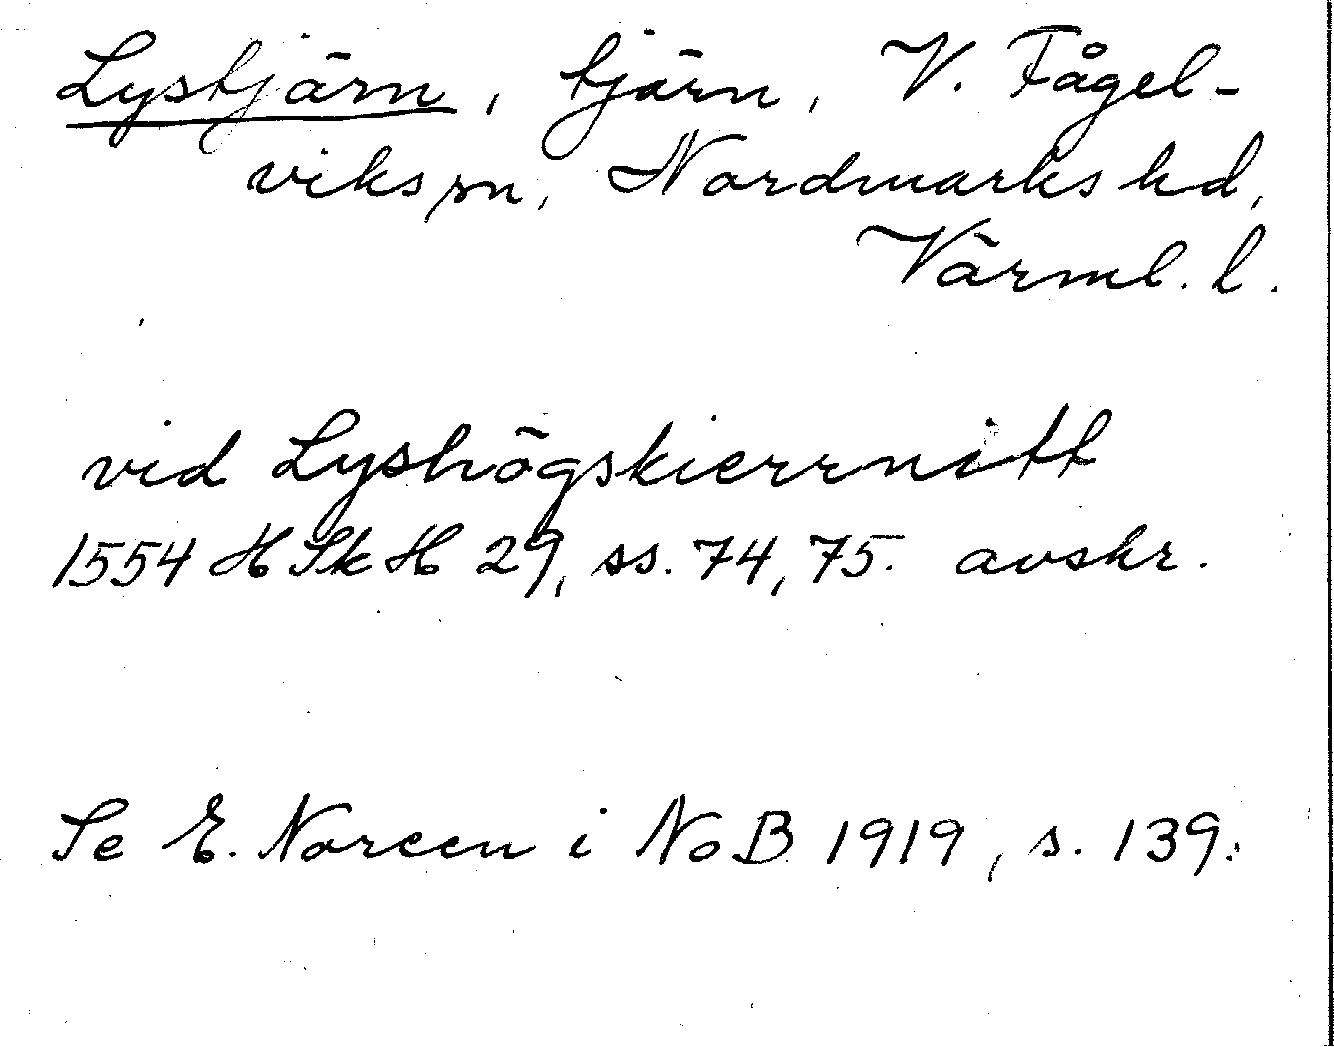 Lystjärn, tjärn, V. Fågel-
viks sn, Nordmarks hd,
Värml. l.
vid Lyshögskierrnitt
1554 HSkH 29, ss. 74, 75. avskr.
Se E. Noreen i NoB 1919, s. 139.